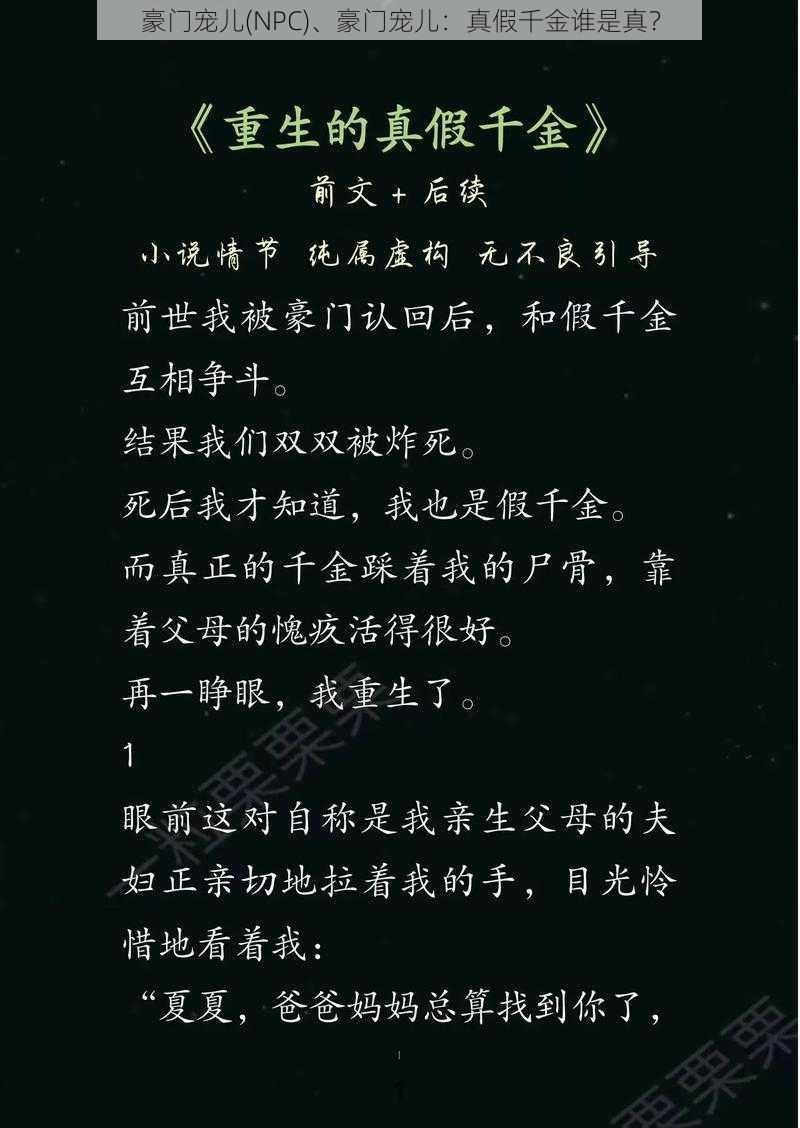 豪门宠儿(NPC)、豪门宠儿：真假千金谁是真？
《重生的真假千金》
前文 + 后续
小说情节 纯属虚构 无不良引导
前世我被豪门认回后，和假千金
互相争斗。
结果我们双双被炸死。
死后我才知道，我也是假千金。
而真正的千金踩着我的尸骨，靠
着父母的愧疚活得很好。
再一睁眼，我重生了。
1
眼前这对自称是我亲生父母的夫
妇正亲切地拉着我的手，目光怜
惜地看着我：
“夏夏，爸爸妈妈总算找到你了，
一粒栗栗栗
栗栗栗
1